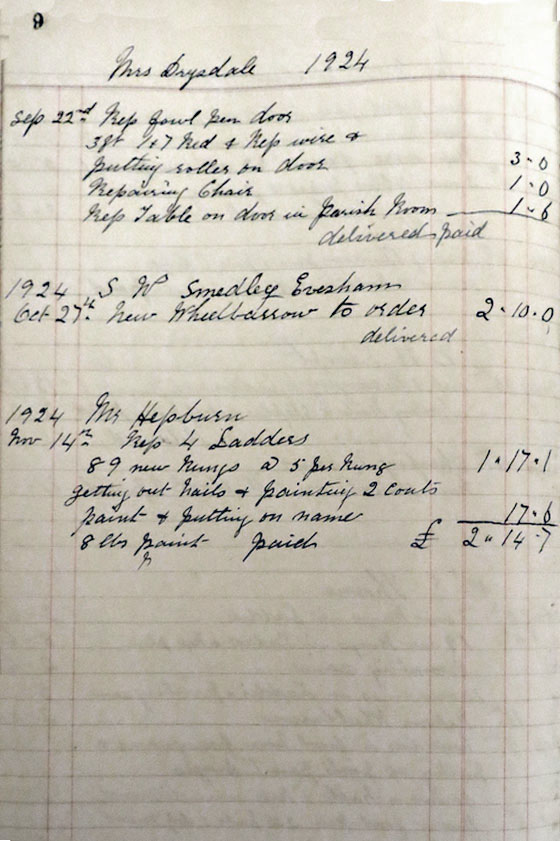 9
Mrs Drysdale 1924
Sep 22nd Rep fowl pen door
3ft 1x7 Red & Rep wire &
putting roller on door 3-0
Repairing Chair 1-0
Rep Table on door in Parish Room 1-6
delivered paid
1924 S W Smedley Evesham
Oct 27th New Wheelbarrow to order 2-10-0
delivered
1924 Mr Hepburn
Nov 14th Rep 4 Ladders
89 new Rungs @ 5 per Rung 1-17-1
getting out nails & painting 2 coats
paint & putting on name 17-6
8 lbs paint paid £ 2-14-7